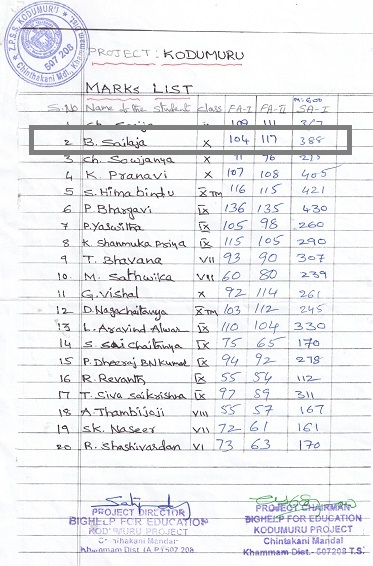 Z.P.S.S. KODUMURU
Chintakani Mdl., Khammam Dist.
507 208
PROJECT : KODUMURU
MARKS LIST
M-600
S.No Name of the student class FA-I FA-II SA-I
2 B. Sailaja X 104 117 388
3 Ch. Sowjanya X 76
4 K. Pranavi X 107 108 405
5 S. Himabindu X TM 116 115 421
6 P. Bhargavi IX 136 135 430
7 P. Yaswitha IX 105 98 260
8 K. Shanmuka Priya IX 115 105 290
9 T. Bhavana VII 93 90 307
10. M. Sathwika VII 60 80 239
11 G. Vishal X 92 114 261
12 D. Nagachaitanya X TM 103 112 245
13 L. Aravind Alwar IX 110 104 330
14 S. Sai Chaitanya IX 75 65 170
15 P. Dheeraj BN Kumar IX 94 92 278
16 R. Revanth IX 55 54 112
17 T. Siva Saikrishna IX 97 89 311
18 A. Thambi Saji VIII 55 57 167
19 SK. Naseer VII 72 61 161
20 R. Shashivardan VI 73 63 170
PROJECT DIRECTOR
BIGHELP FOR EDUCATION
KODUMURU PROJECT
Chintakani Mandal
Khammam Dist. (A.P.) 507 208
PROJECT CHAIRMAN
BIGHELP FOR EDUCATION
KODUMURU PROJECT
Chintakani Mandal
Khammam Dist.- 507208 T.S.